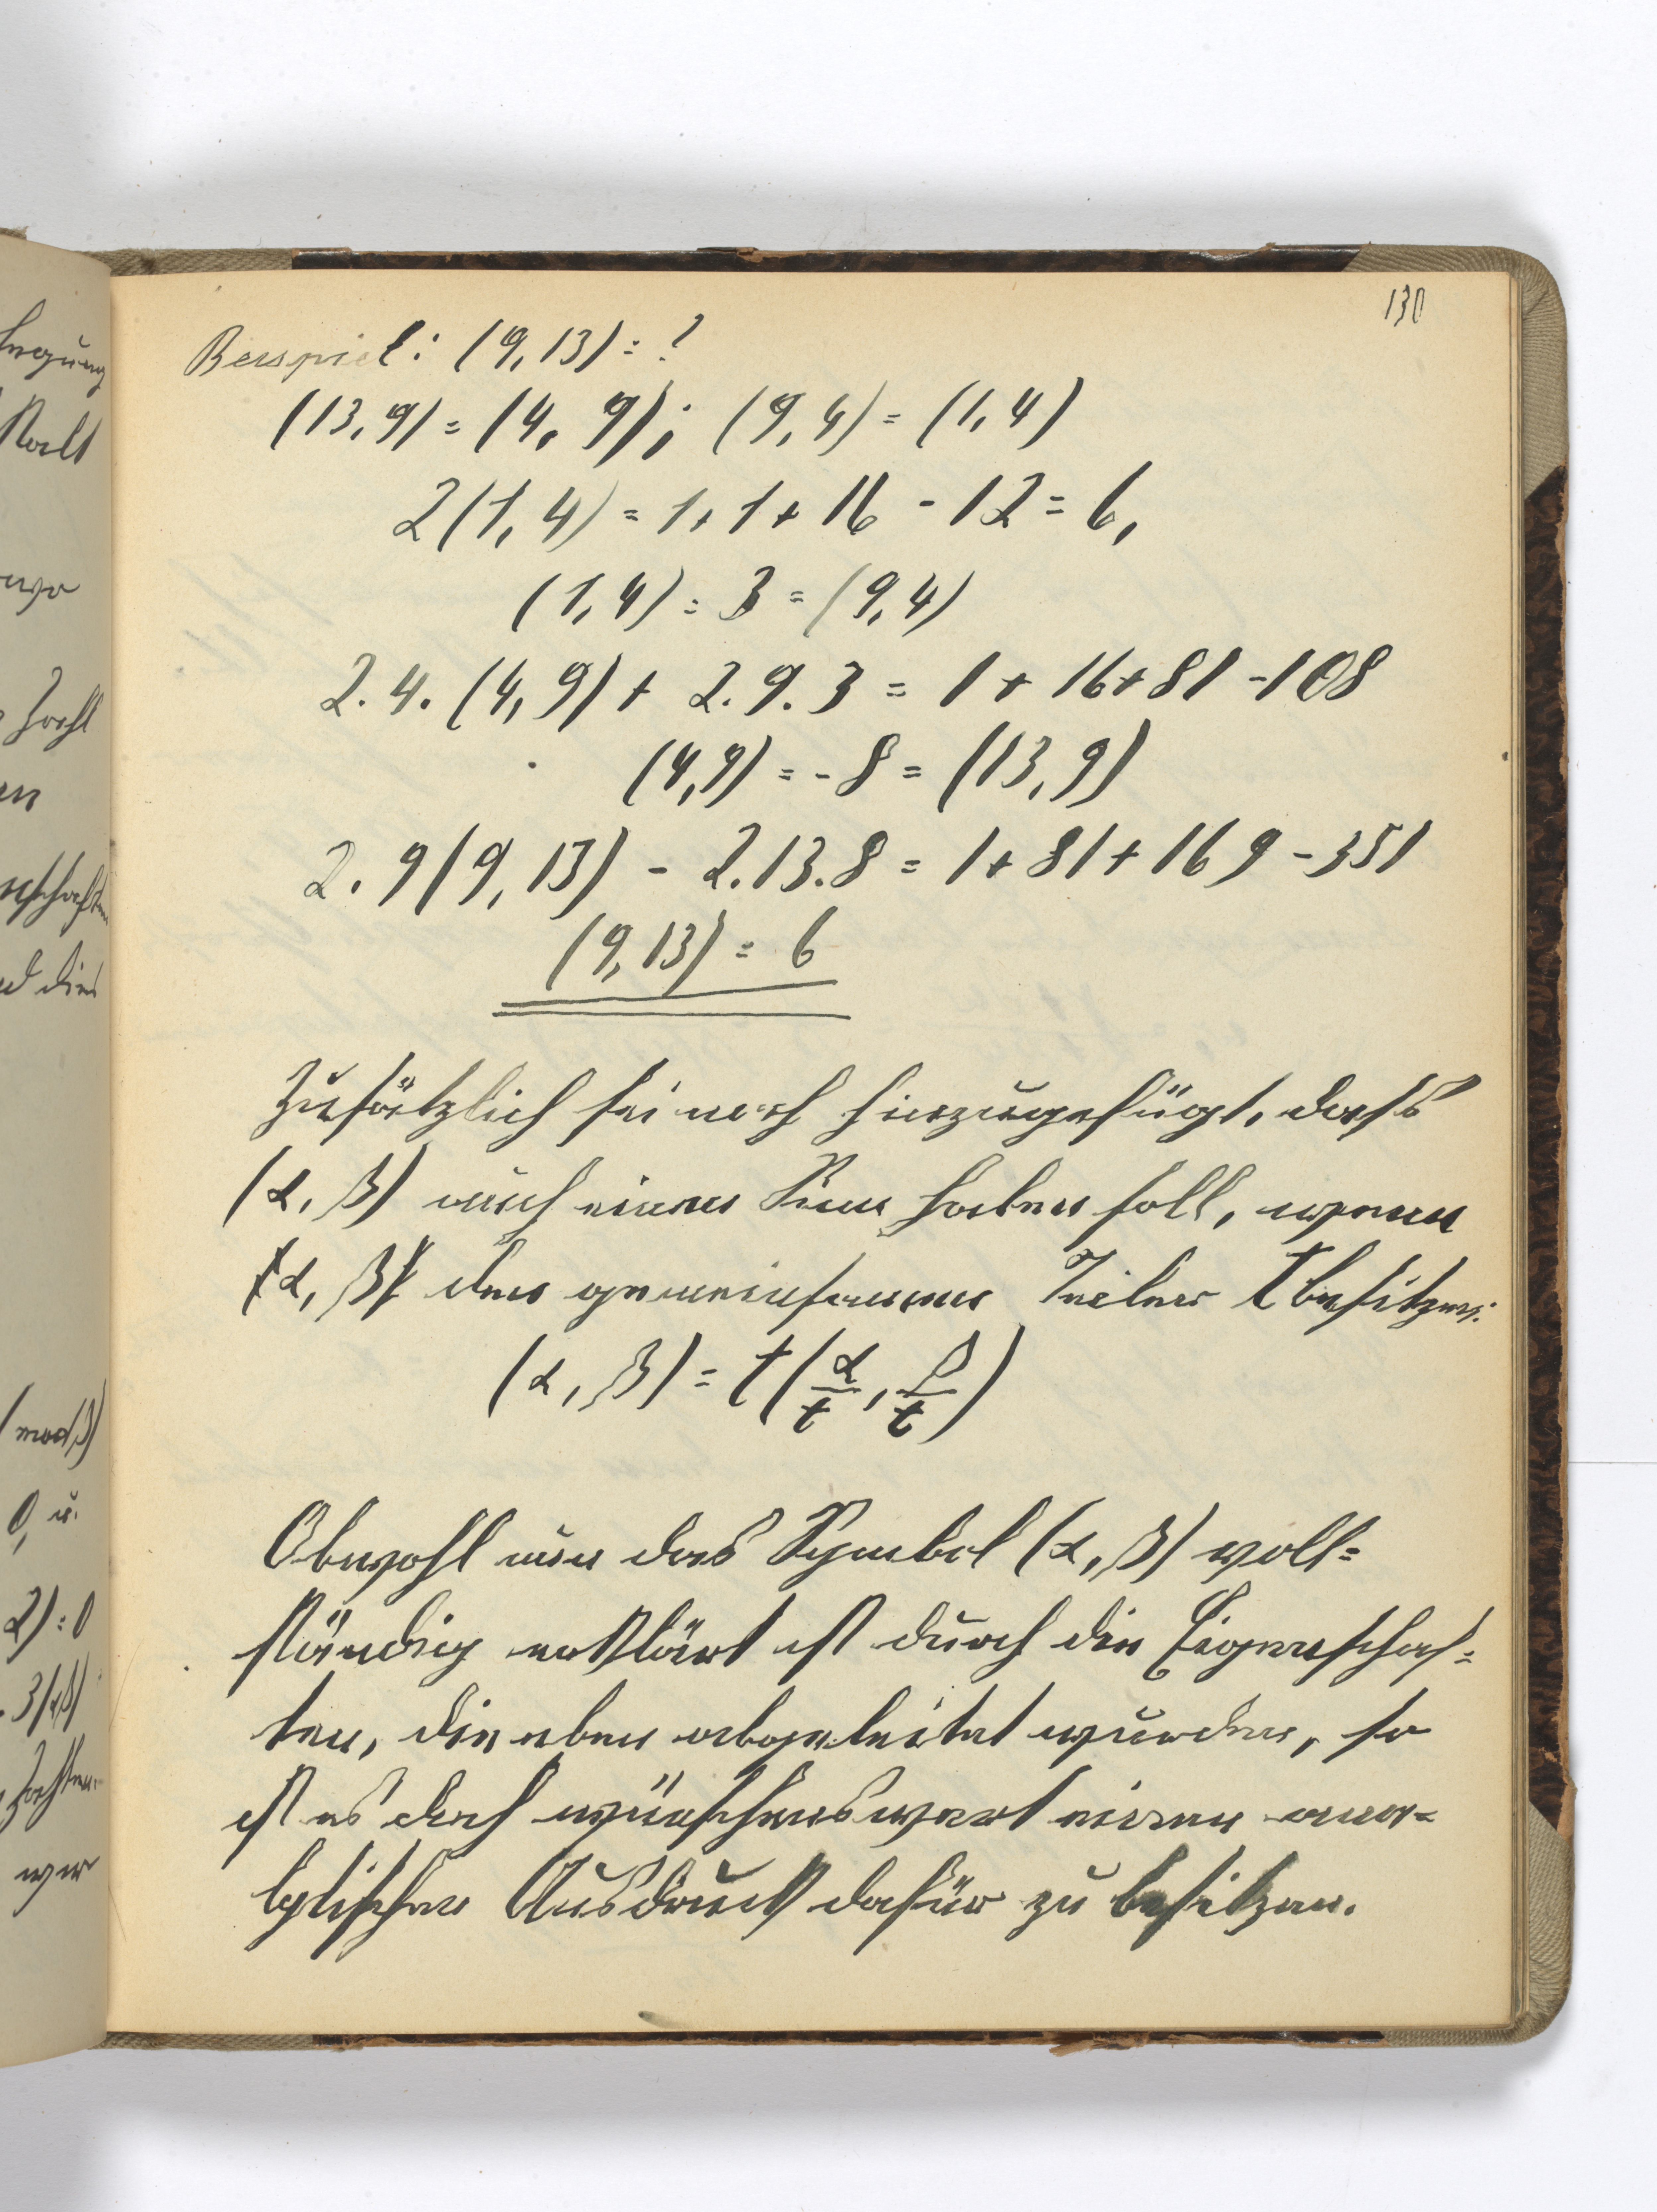 130
Beispiel: (9,13) = ?
(13,9) = (4,9); (9,4) = (1,4)
2(1,4) = 1+1+16 - 12 = 6,
(1,4) = 3 = (9,4)
2.4.(4,9) + 2.9.3 = 1+16+81-108
(4,9) = -8 = (13,9)
2.9(9,13) - 2.13.8 = 1+81+169-351
(9,13) = 6
Zusätzlich sei noch hinzugefügt, dass
(α,β) auch einen Sinn haben soll, wenn
α,β den gemeinsamen Teiler t besitzen:
(α,β) = t(α/t, β/t)
Obwohl nun das Symbol (α,β) voll=
ständig erklärt ist durch die Eigenschaf=
ten, die eben abgeleitet wurden, so
ist es doch wünschenswert einen ana=
lytischen Ausdruck dafür zu besitzen.